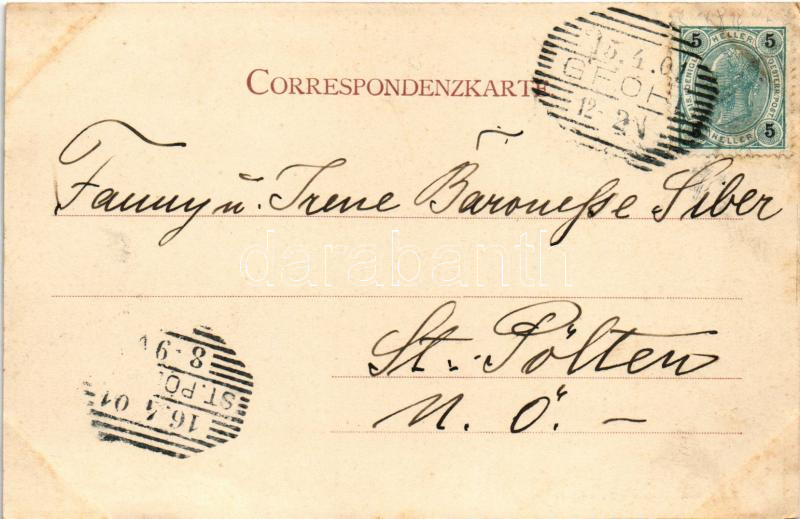 CORRESPONDENZKARTE
15.4.01
12-2N
5 HELLER 5
5
HELLER
Fanny u. Irene Baronesse Siber
darabanth
St. Pölten
N. Ö. –
ST.PÖ
16.4.01
8-9